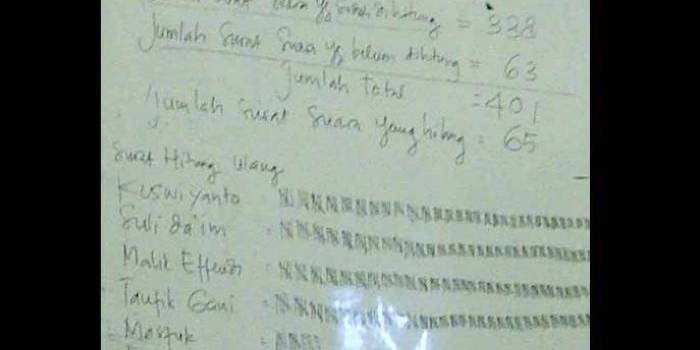 Suara yg sudah dihitung = 338
Jumlah Surat Suara yg belum dihitung = 63
Jumlah Total = 401
Jumlah Surat Suara yang hilang = 65
Surat Hitung Ulang
Kuswiyanto
Suli da'im
Malik Effendi
Taufik Gani
Masfuk